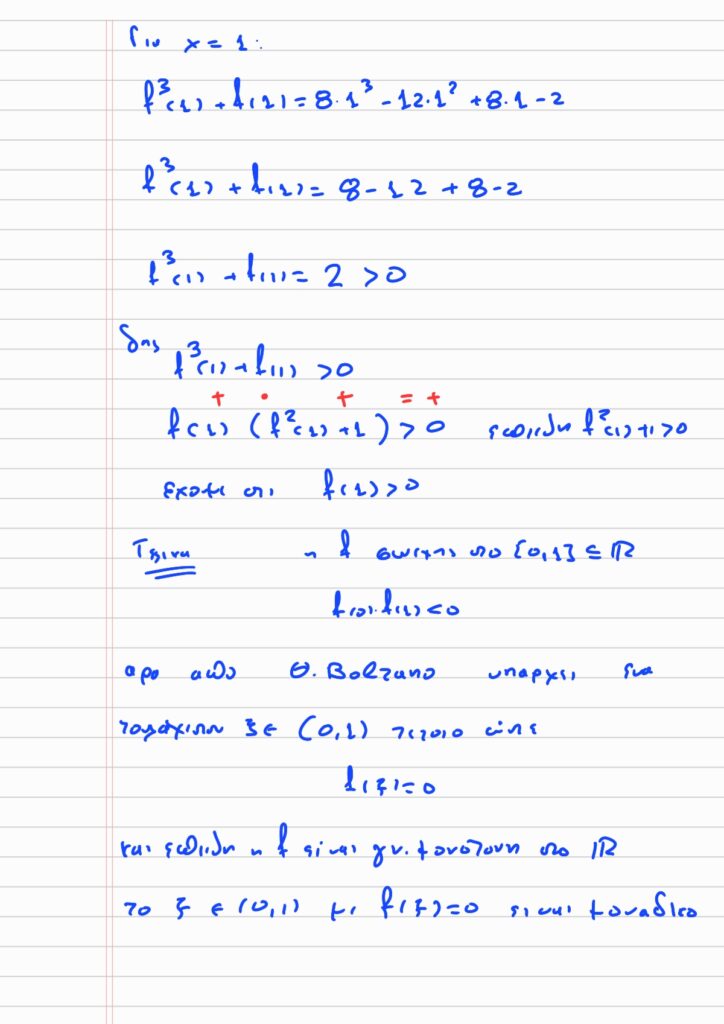 Για x = 1:
f³(1) + f(1) = 8·1³ - 12·1² + 8·1 - 2
f³(1) + f(1) = 8 - 12 + 8 - 2
f³(1) + f(1) = 2 > 0
δης f³(1) + f(1) > 0
+ · + = +
f(1) (f²(1) + 1) > 0 επειδη f²(1) + 1 > 0
εχουμε οτι f(1) > 0
Τελικα η f συνεχης στο [0,1] ⊆ ℝ
f(0)·f(1) < 0
αρα απο Θ. Bolzano υπαρχει ενα
τουλαχιστον ξ ∈ (0,1) τετοιο ωστε
f(ξ) = 0
και επειδη η f ειναι γν. μονοτονη στο ℝ
το ξ ∈ (0,1) με f(ξ) = 0 ειναι μοναδικο